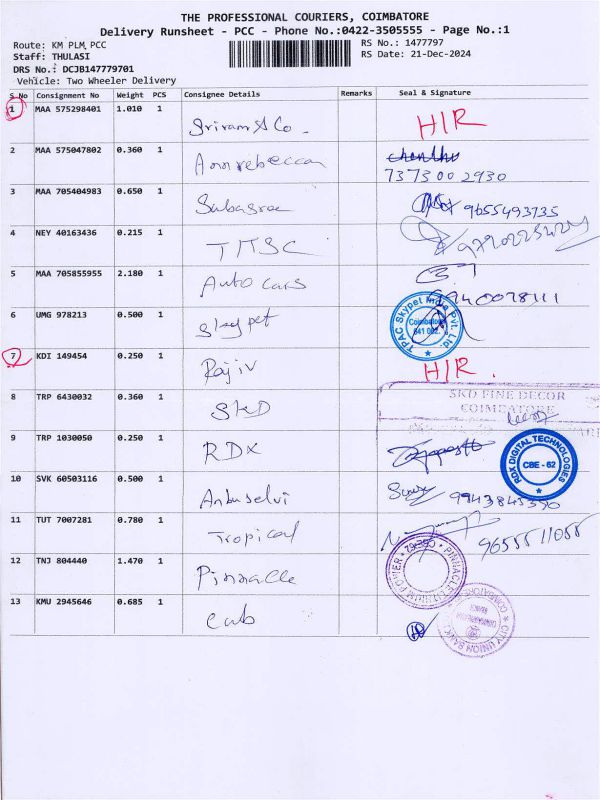 THE PROFESSIONAL COURIERS, COIMBATORE
Delivery Runsheet - PCC - Phone No.:0422-3505555 - Page No.:1
Route: KM PLM PCC
RS No.: 1477797
Staff: THULASI
RS Date: 21-Dec-2024
DRS No.: DCJB147779701
Vehicle: Two Wheeler Delivery
S No Consignment No Weight PCS Consignee Details Remarks Seal & Signature
1 MAA 575298401 1.010 1 Sriram & Co. H/R
2 MAA 575047802 0.360 1 Annrebeccaa
7373002930
3 MAA 705404983 0.650 1 Subasree 9655493735
4 NEY 40163436 0.215 1 TMSC
5 MAA 705855955 2.180 1 Auto cars
9940078111
6 UMG 978213 0.500 1 Skypet TPAC Skypet India Pvt. Ltd. Coimbatore 641 002.
7 KDI 149454 0.250 1 Rajiv H/R.
8 TRP 6430032 0.360 1 SKD SKD FINE DECOR
COIMBATORE
9 TRP 1030050 0.250 1 RDX RDX DIGITAL TECHNOLOGIES CBE - 62
10 SVK 60503116 0.500 1 Anbuselvi 9943845350
11 TUT 7007281 0.780 1 Tropical 9655511055
12 TNJ 804440 1.470 1 Pinnacle
13 KMU 2945646 0.685 1 cub CITY UNION BANK COIMBATORE